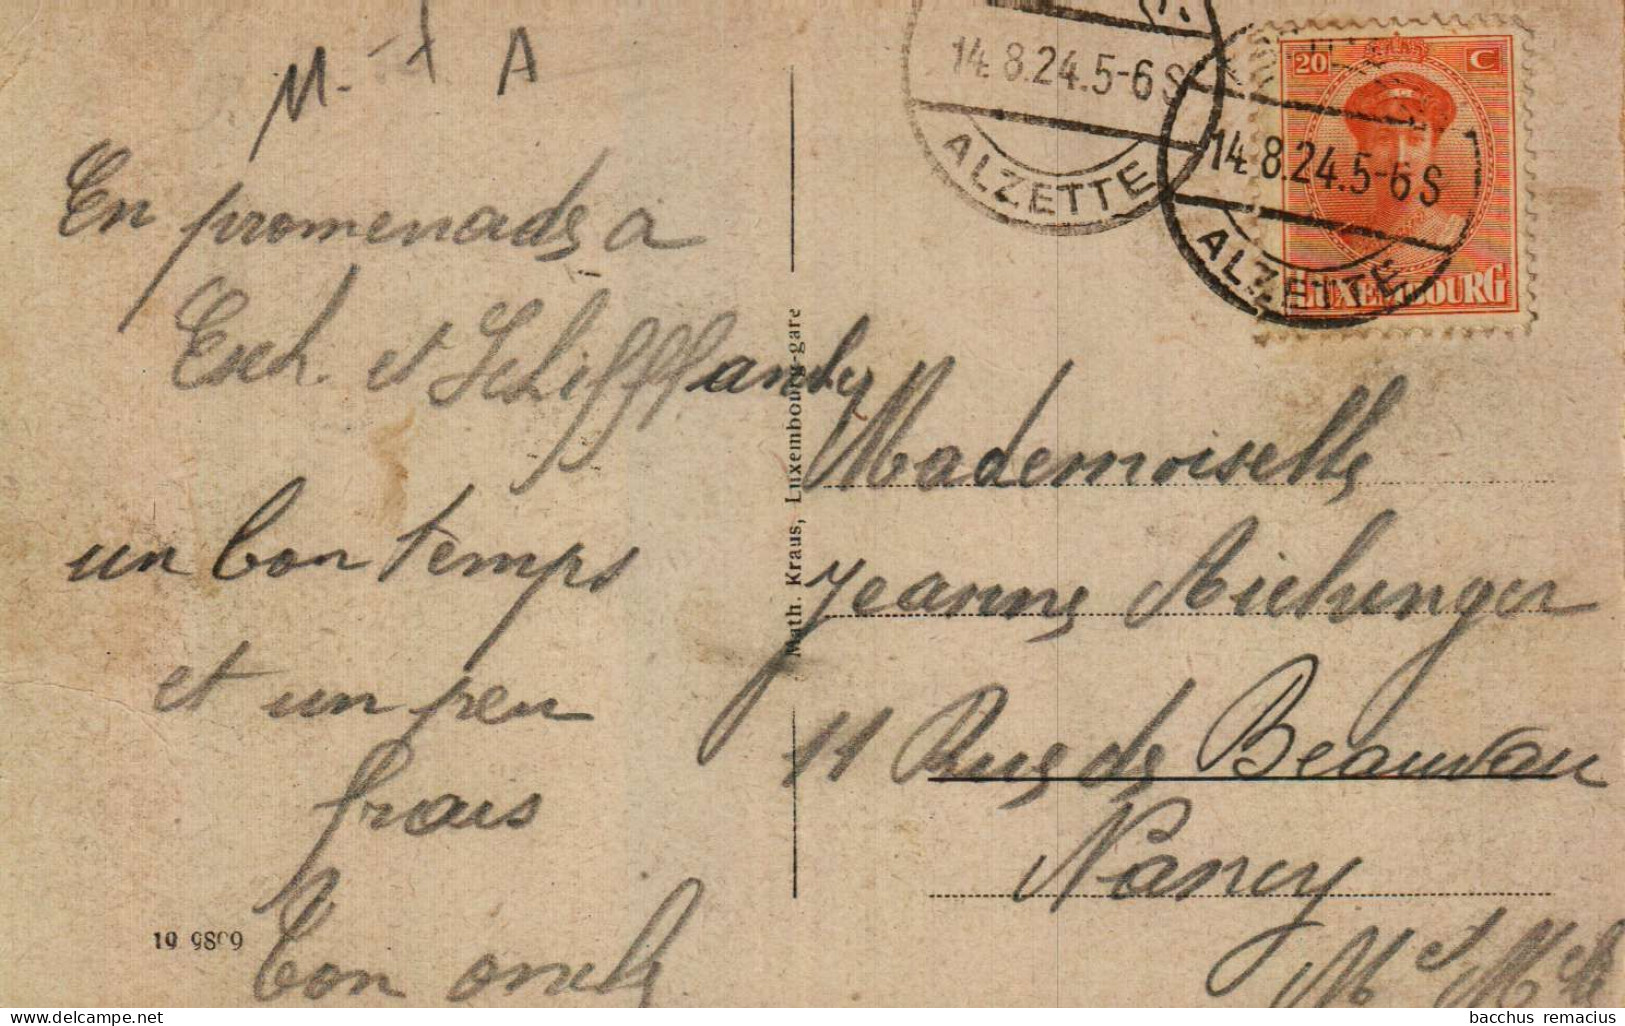 M - T A
En promenade a
Esch. et Schifflange
un bon temps
et un peu
frais
ton oncle
19 9809
Math. Kraus, Luxembourg-gare
14.8.24.5-6S
ALZETTE
14.8.24.5-6S
ALZETTE
20 C
LUXEMBOURG
Mademoiselle
Jeanne Aichinger
11 Rue de Beauvau
Nancy
Mt Mlle
bacchus remacius